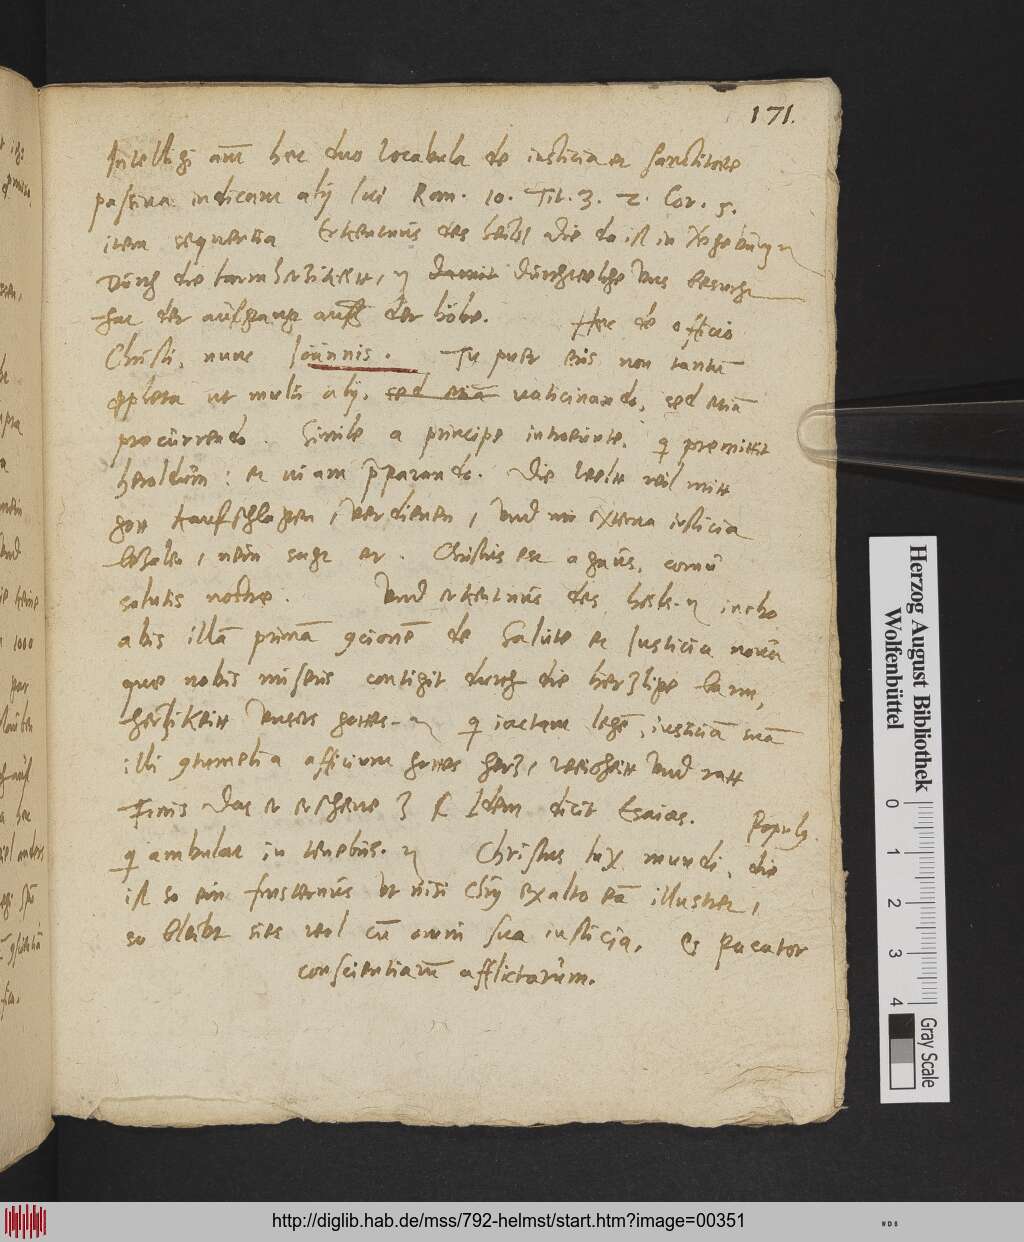 171.
Intelligi autem hec duo vocabula de iusticia et sanctitate
passiva indicant alij loci Rom. 10. Tit. 3. 2. Cor. 5.
item sequentia Erkentnus des heils die do ist in
durch die barmhertzikeit, damit durch welche uns besucht
hat der aufgang auss der höhe. Hec de officio
Christi, nunc Ioannis. Tu puer eris non tantum
propheta ut multi alij, sed etiam vaticinando, sed etiam
procurrendo. Simile a principe introeunte. qui premittit
heroldum: et viam parando. Die welt wil mitt
gott kaufschlagen, verdienen, und mit externa iusticia
bezalen, nein sagt er. Christus est agnus, cornu
salutis nostre. Und erkentnus des heils incho
abis illam primam concionem de Salute et Iusticia novam
que nobis miseris contigit durch die hertzlige barm,
hertzikeitt unsers gottes qui iactant legem, iusticiam suam
illi contumelia afficiunt gottes hertz, weisheitt und ratt
Finis Das er erscheine Idem dicit Esaias. Populus
qui ambulat in tenebris. Christus lux mundi, die
ist so ein finsternus ut nisi ex alto eam illustret,
so bleibt sies wol cum omni sua iusticia. Es pacator
conscientiarum afflictarum.
Herzog August Bibliothek
Wolfenbüttel
0 1 2 3 4
Gray Scale
http://diglib.hab.de/mss/792-helmst/start.htm?image=00351